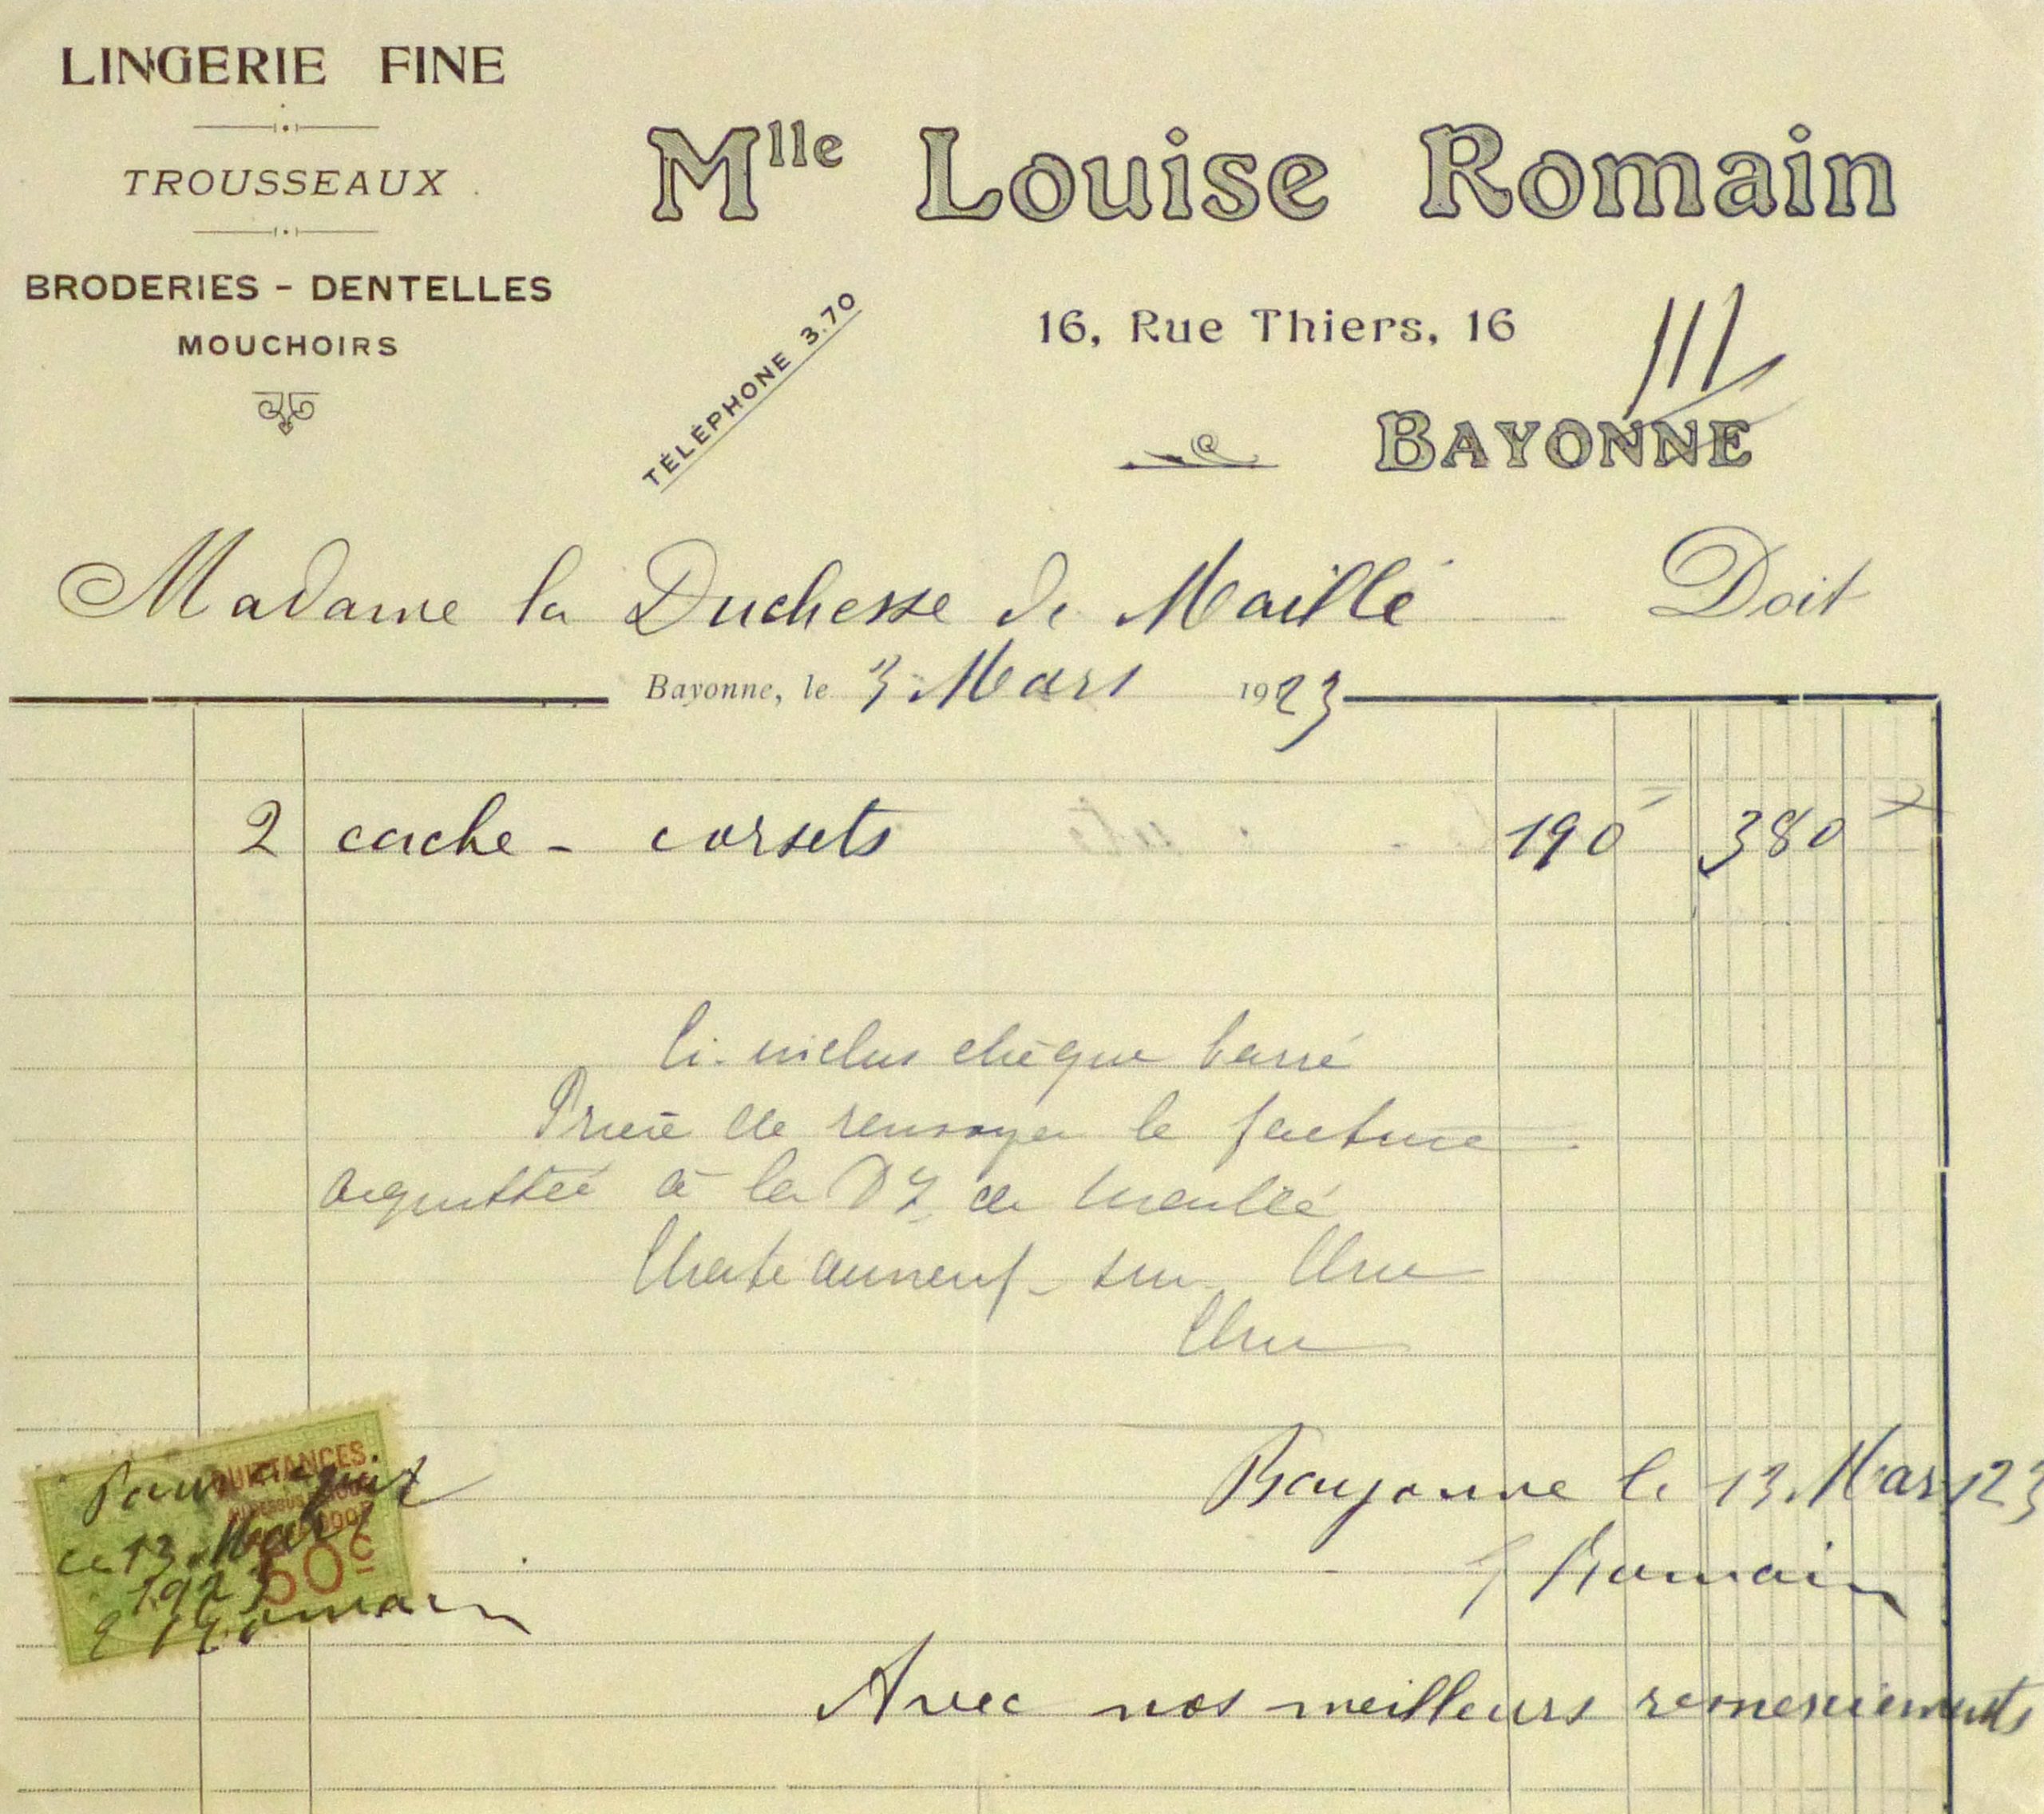 LINGERIE FINE
TROUSSEAUX
BRODERIES - DENTELLES
MOUCHOIRS
Mlle Louise Romain
TÉLÉPHONE 3.70
16, Rue Thiers, 16
BAYONNE
Madame la Duchesse de Maillé Doit
Bayonne, le 3 Mars 1923
2 cache - corsets 190 = 380 =
Ci-inclus chèque barré
Prière de renvoyer la facture
acquittée à la Dsse de Maillé
Chateauneuf-sur-Cher
Cher
QUITTANCES
50c
Pour acquit
ce 13 Mars
1923
Romain
Bayonne le 13 Mars 123
Romain
Avec nos meilleurs remerciements